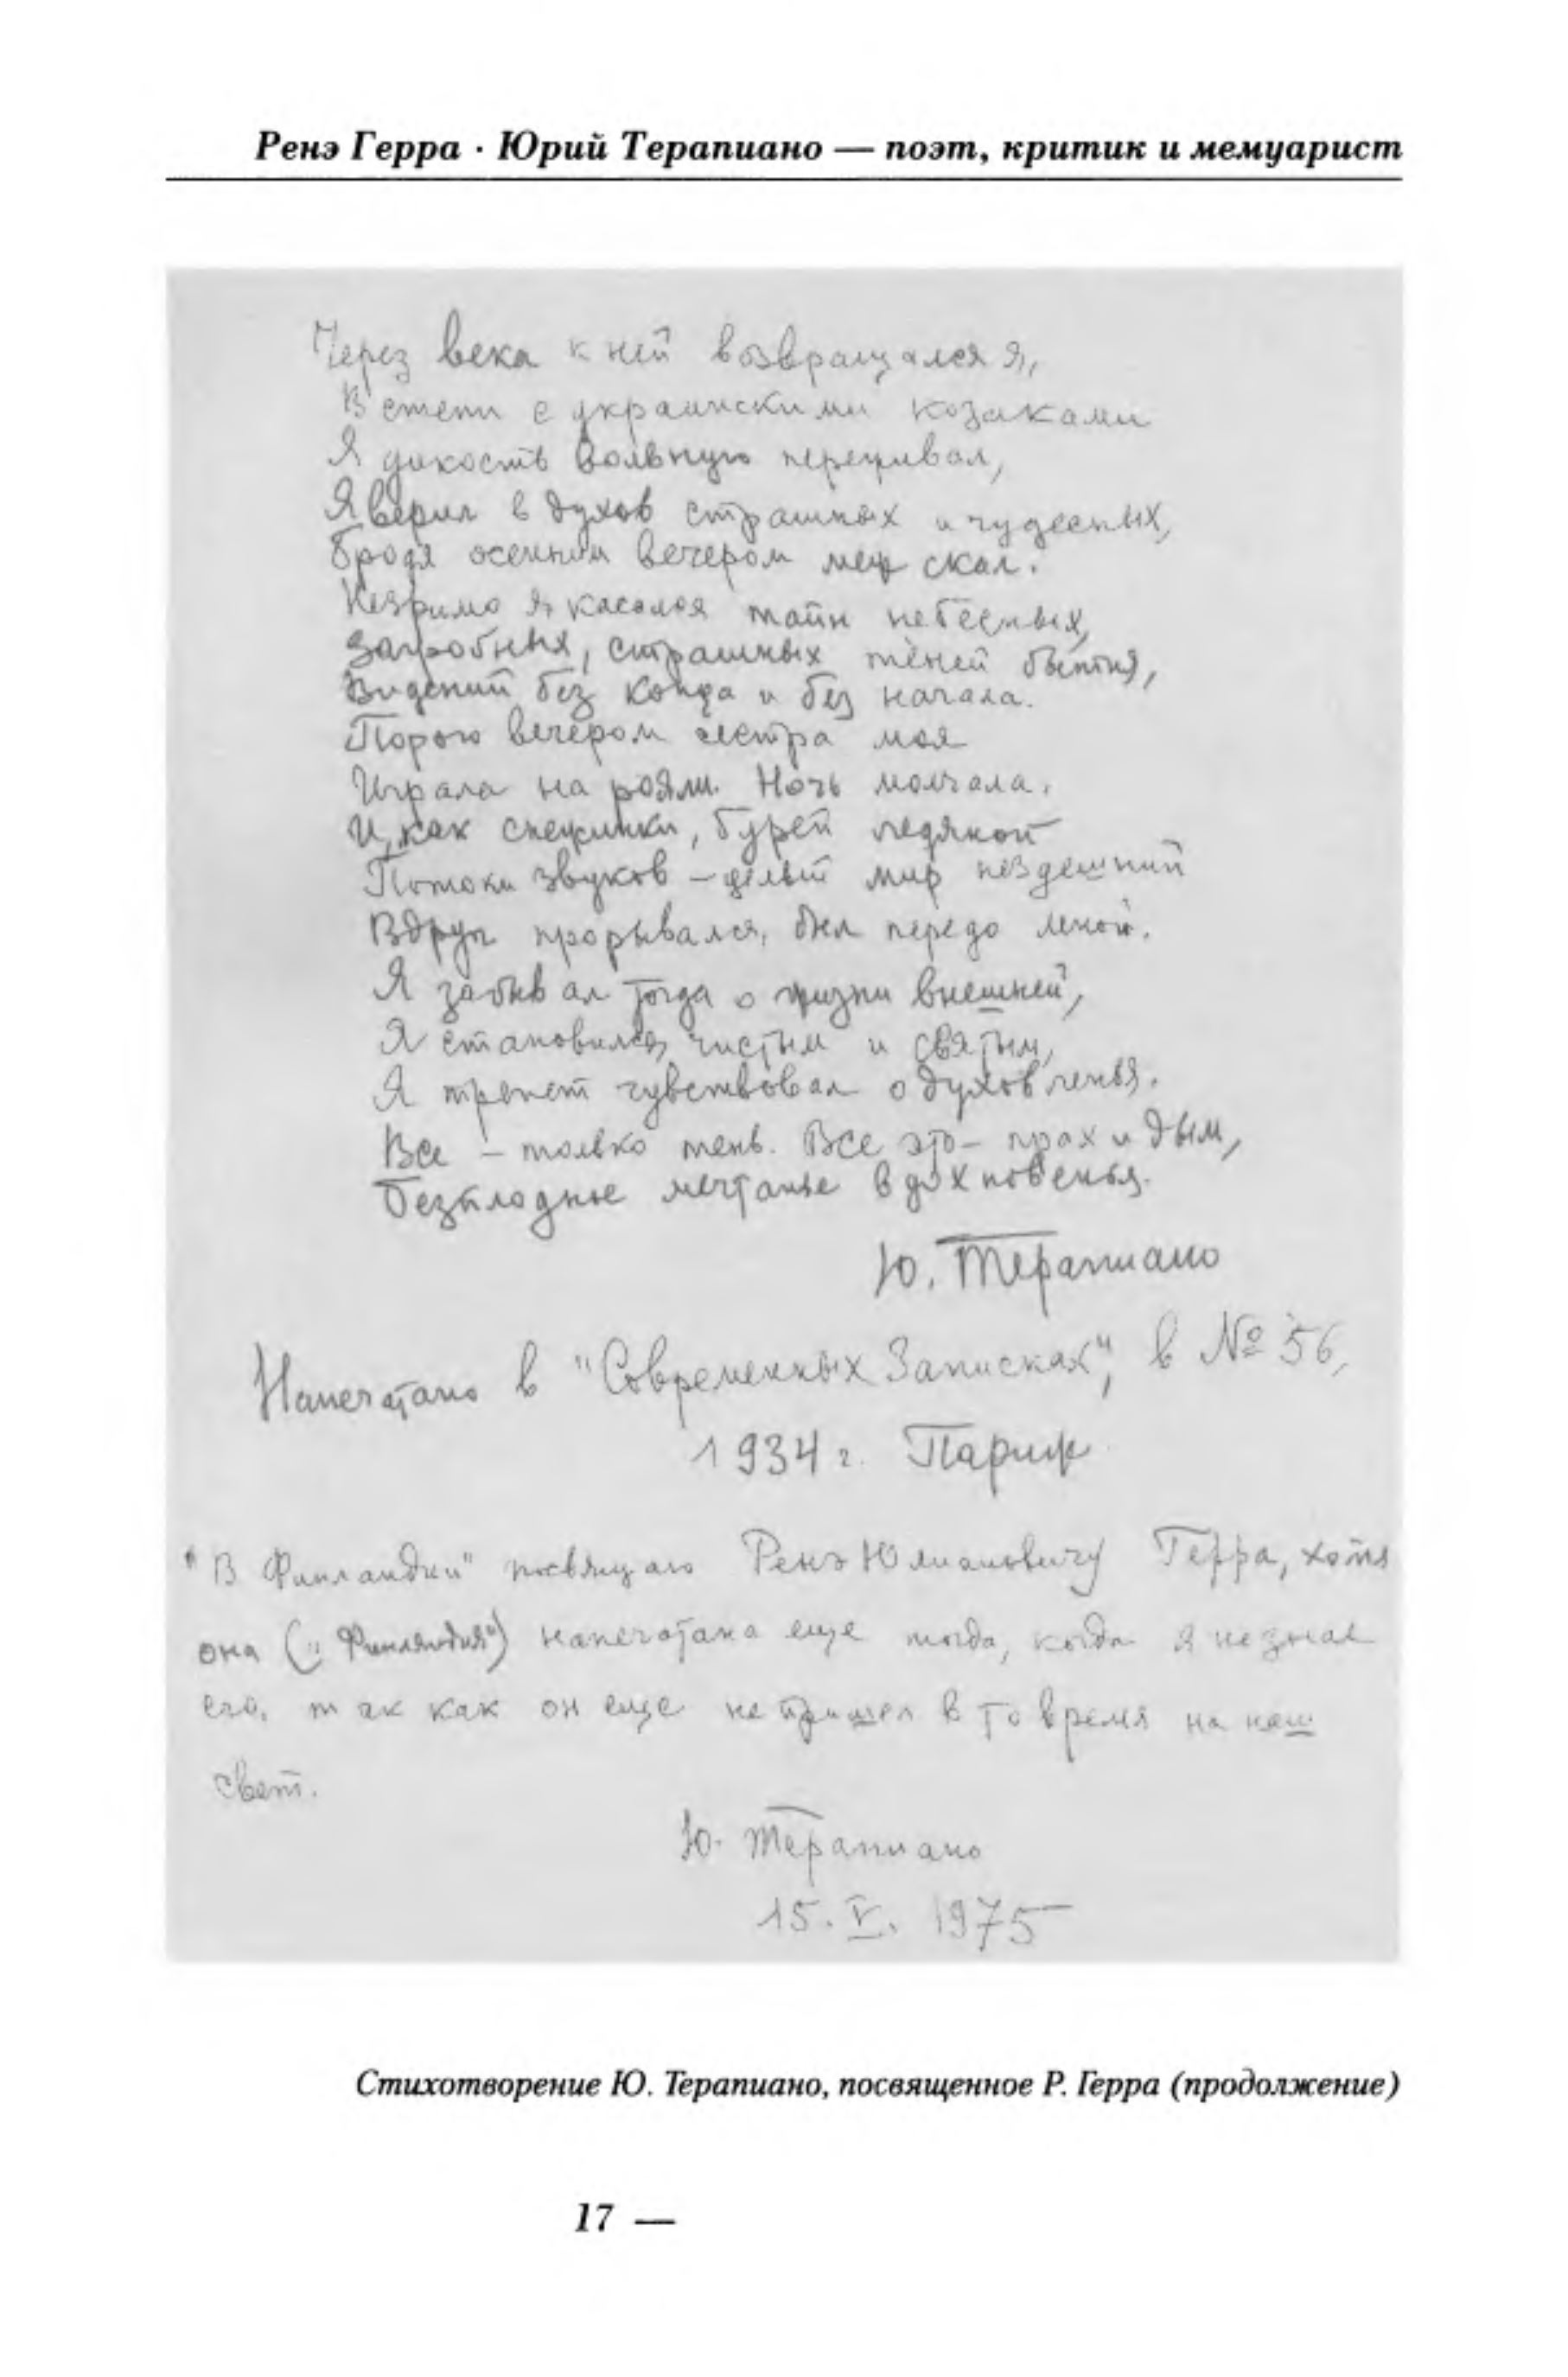 Ренэ Герра · Юрий Терапиано — поэт, критик и мемуарист
Через века к ней возвращался я,
В степи с украинскими козаками
Я дикость вольную переживал,
Я верил в духов страшных и чудесных,
Бродя осенним вечером меж скал.
Незримо я касался тайн небесных,
Загробных, страшных теней бытия,
Видений без конца и без начала.
Порою вечером сестра моя
Играла на рояли. Ночь молчала.
И, как снежинки, бурей ледяной
Потоки звуков — целый мир нездешний
Вдруг прорывался, был передо мной.
Я забывал тогда о жизни внешней,
Я становился чистым и святым,
Я трепет чувствовал одуховленья.
Все — только тень. Все это — прах и дым,
Безплодные мечтанье вдохновенья.
Ю. Терапиано
Напечатано в "Современных Записках", в № 56,
1934 г. Париж
"В Финландии" посвящаю Ренэ Юлиановичу Герра, хотя
она („Финляндия") напечатана еще тогда, когда я не знал
его, так как он еще не пришел в то время на наш
свет.
Ю. Терапиано
15. V. 1975
Стихотворение Ю. Терапиано, посвященное Р. Герра (продолжение)
17 —